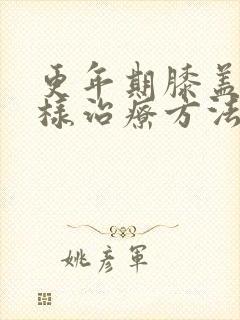 更年期膝盖
样治疗方法
姚彦军